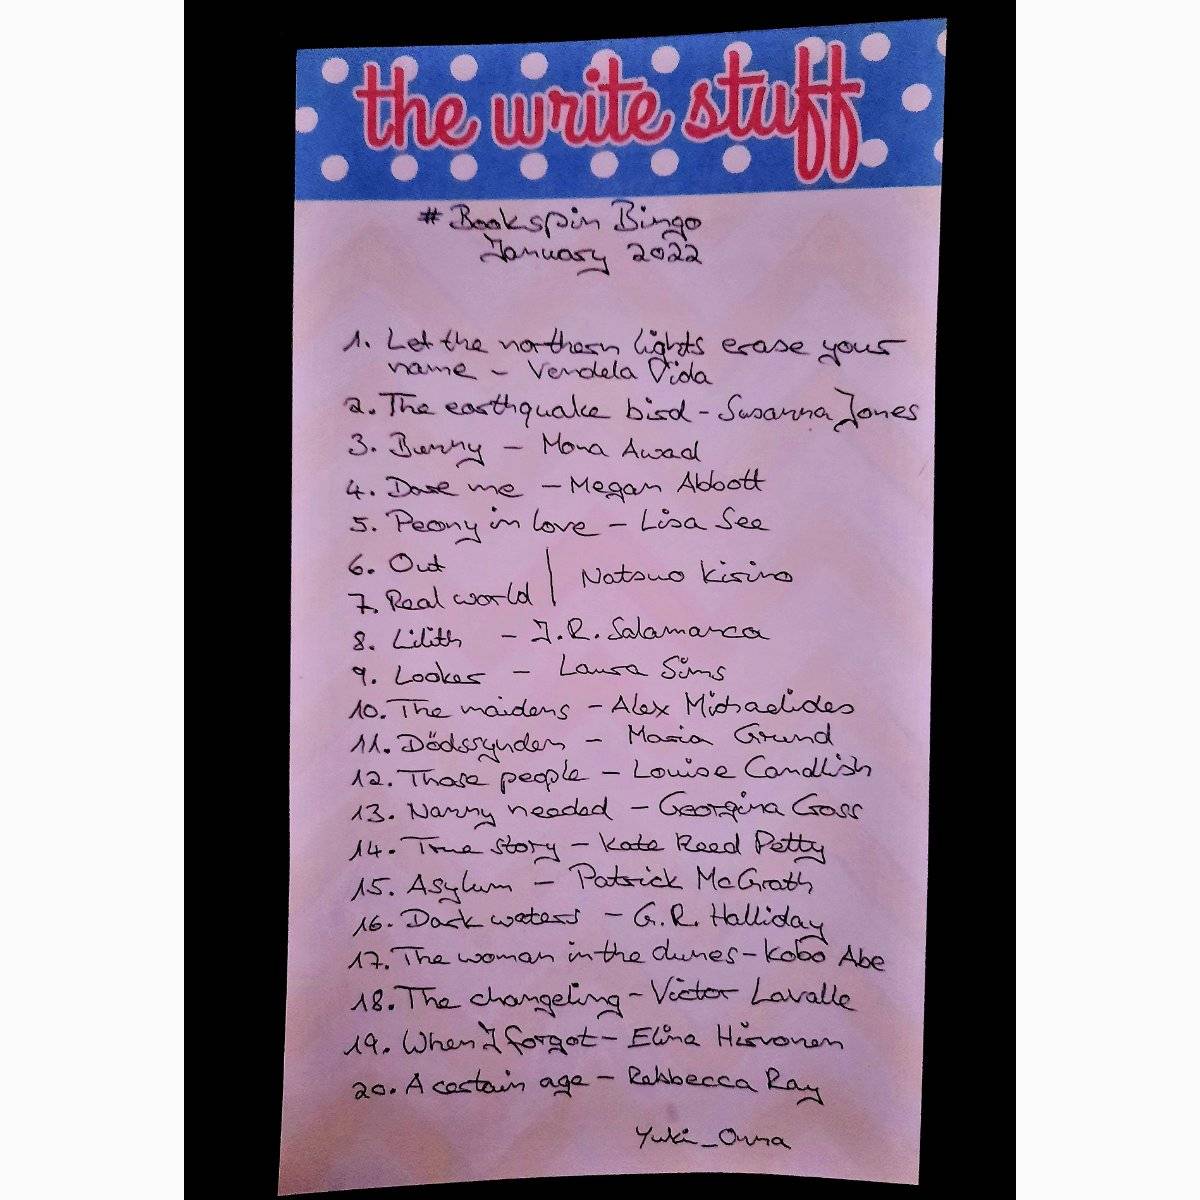 the write stuff
#Bookspin Bingo
January 2022
1. Let the northern lights erase your
name - Vendela Vida
2. The earthquake bird - Susanna Jones
3. Bunny - Mona Awad
4. Dare me - Megan Abbott
5. Peony in love - Lisa See
6. Out
7. Real world | Natsuo Kirino
8. Lilith - J.R. Salamanca
9. Looker - Laura Sims
10. The maidens - Alex Michaelides
11. Dödssynden - Maria Grund
12. Those people - Louise Candlish
13. Nanny needed - Georgina Cross
14. True story - Kate Reed Petty
15. Asylum - Patrick McGrath
16. Dark waters - G.R. Halliday
17. The woman in the dunes - Kobo Abe
18. The changeling - Victor Lavalle
19. When I forgot - Elina Hirvonen
20. A certain age - Rebbecca Ray
Yuki_Onna